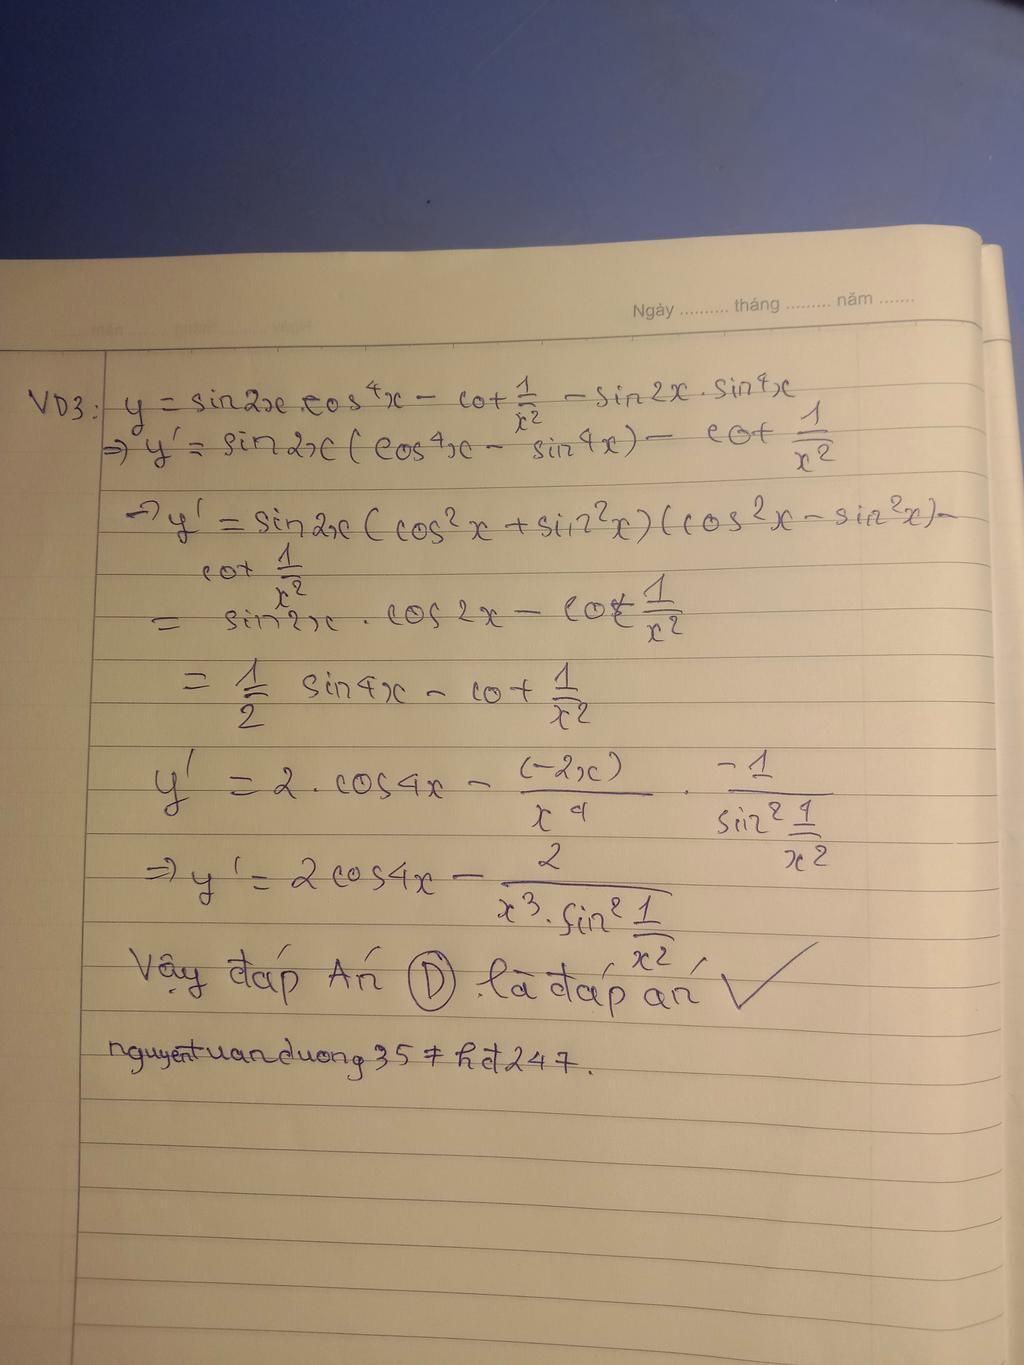 Ngày .......... tháng ......... năm .......
VD3: y = sin2x.cos⁴x - cot 1/x² - sin2x.sin⁴x
⇒ y' = sin2x(cos⁴x - sin⁴x) - cot 1/x²
⇒ y' = sin2x(cos²x + sin²x)(cos²x - sin²x) -
cot 1/x²
= sin2x . cos2x - cot 1/x²
= 1/2 sin4x - cot 1/x²
y' = 2.cos4x - (-2x)/x⁴ . -1/sin² 1/x²
⇒ y' = 2cos4x - 2/x³.sin² 1/x²
Vậy đáp Án Ⓓ là đáp án ✓
nguyentuanduong357hđ247.